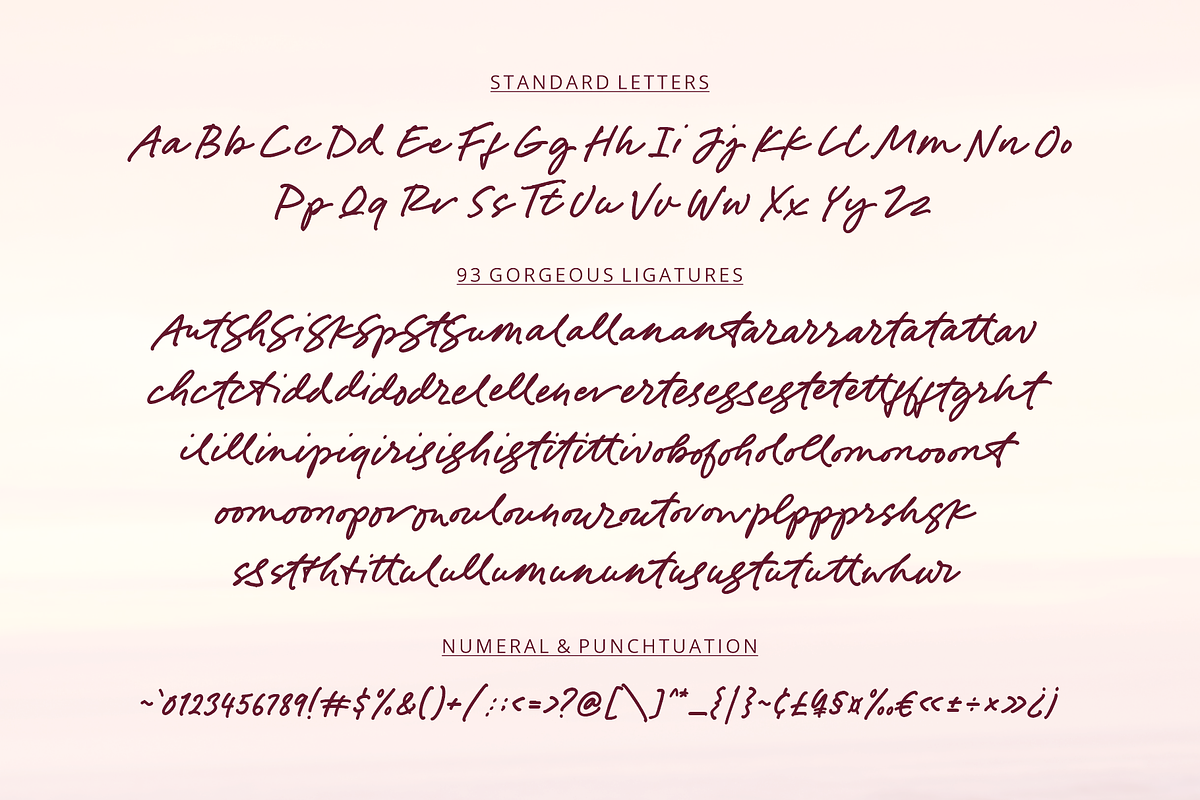 STANDARD LETTERS
Aa Bb Cc Dd Ee Ff Gg Hh Ii Jj Kk Ll Mm Nn Oo
Pp Qq Rr Ss Tt Uu Vv Ww Xx Yy Zz
93 GORGEOUS LIGATURES
AutShSiSkSpStSumalallananantararrartatattav
chctctidddidodrelellenenerertesessestetettfffftgrht
ilillinipiqirisishistititttivobofoholollomonooont
oomoonoporonoulounouroutovowplppprshsk
ssstthtittulullumununtusustututtwhwr
NUMERAL & PUNCHTUATION
~`0123456789!#$%&()+/:;<=>?@[\]^*_{|}~¢£¥§¤%‰€«±÷×»¿¡